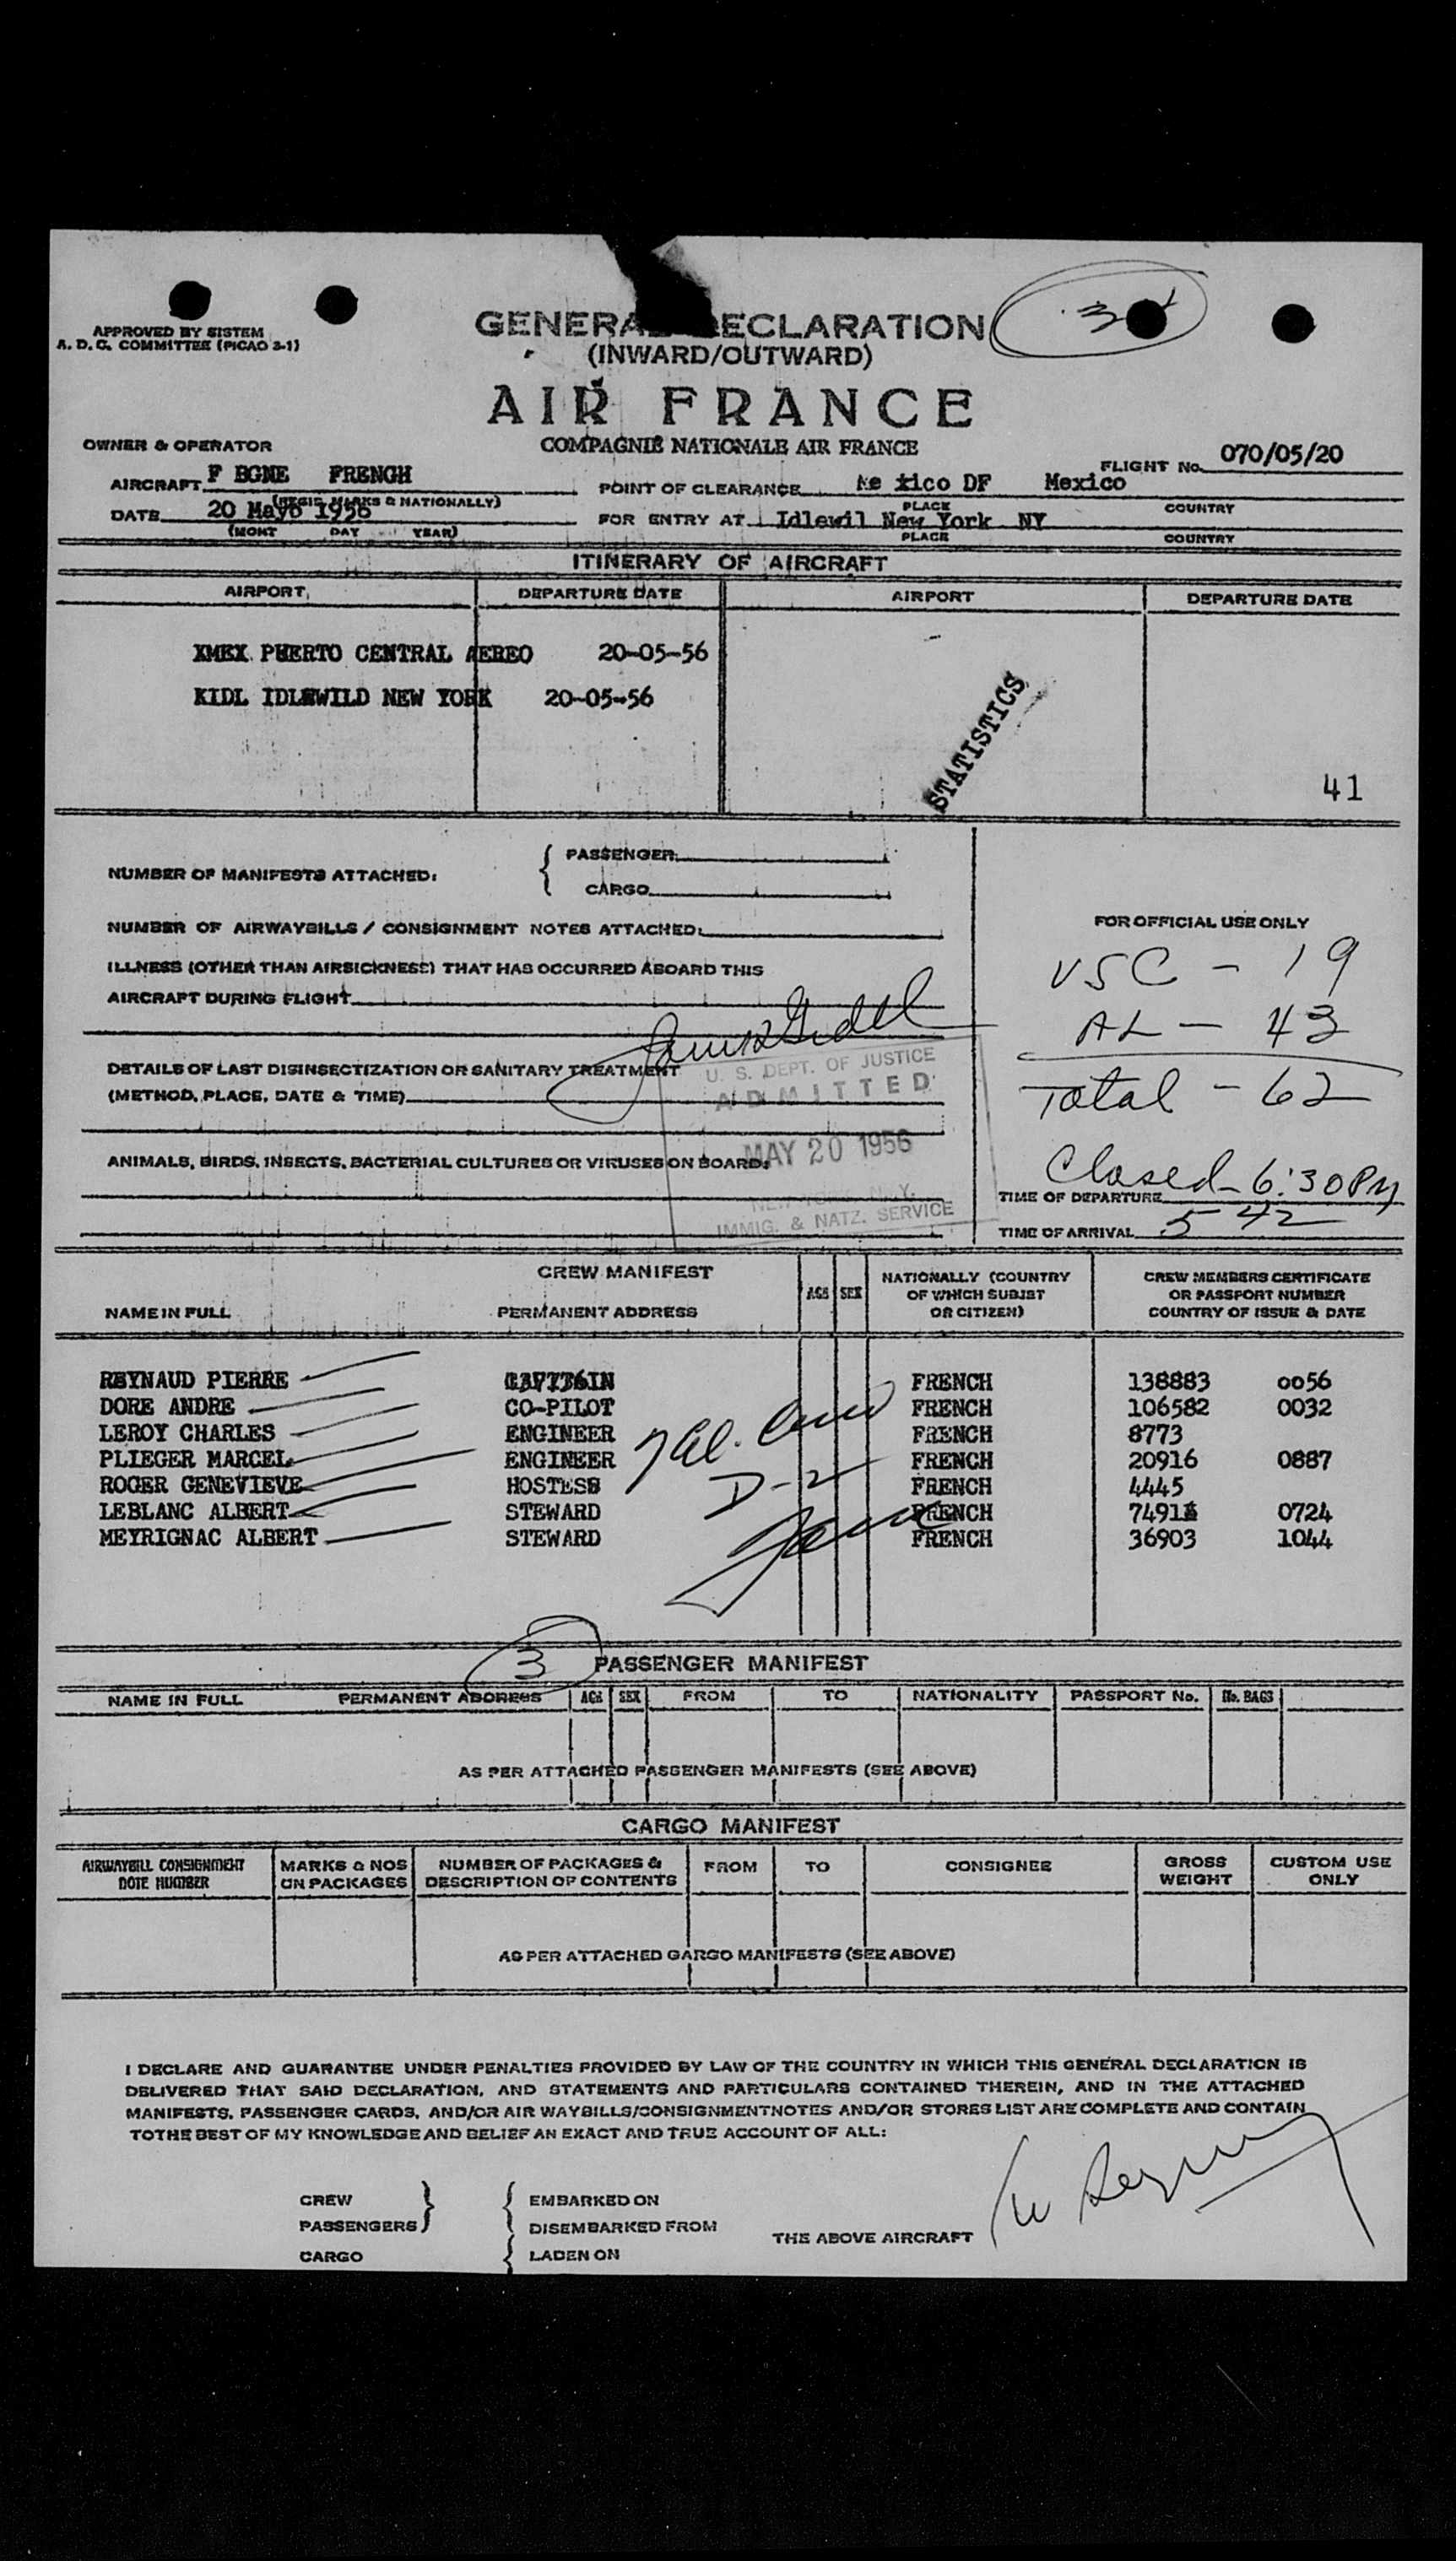 APPROVED BY SISTEM
A. D. C. COMMITTEE (PICAO 3-1)
GENERA ECLARATION
(INWARD/OUTWARD)
3
AIR FRANCE
OWNER & OPERATOR
COMPAGNIE NATIONALE AIR FRANCE
FLIGHT No. 070/05/20
AIRCRAFT F BGNE FRENCH
(REGIS. MARKS & NATIONALLY)
POINT OF CLEARANCE Me xico DF Mexico
PLACE COUNTRY
DATE 20 Mayo 1956
(MONT DAY YEAR)
FOR ENTRY AT Idlewil New York NY
PLACE COUNTRY
ITINERARY OF AIRCRAFT
AIRPORT DEPARTURE DATE AIRPORT DEPARTURE DATE
XMEX PUERTO CENTRAL AEREO 20-05-56
KIDL IDLEWILD NEW YORK 20-05-56
STATISTICS
41
NUMBER OF MANIFESTS ATTACHED:
PASSENGER
CARGO
NUMBER OF AIRWAYBILLS / CONSIGNMENT NOTES ATTACHED:
ILLNESS (OTHER THAN AIRSICKNESS) THAT HAS OCCURRED ABOARD THIS
AIRCRAFT DURING FLIGHT
DETAILS OF LAST DISINSECTIZATION OR SANITARY TREATMENT
(METHOD, PLACE, DATE & TIME)
ANIMALS, BIRDS, INSECTS, BACTERIAL CULTURES OR VIRUSES ON BOARD:
U. S. DEPT. OF JUSTICE
ADMITTED
MAY 20 1956
NEW YORK, N.Y.
IMMIG. & NATZ. SERVICE
FOR OFFICIAL USE ONLY
USC - 19
AL - 43
Total - 62
Closed - 6:30 PM
TIME OF DEPARTURE
TIME OF ARRIVAL 5 42
CREW MANIFEST
NAME IN FULL PERMANENT ADDRESS AGE SEX NATIONALLY (COUNTRY OF WHICH SUBJST OR CITIZEN) CREW MEMBERS CERTIFICATE OR PASSPORT NUMBER COUNTRY OF ISSUE & DATE
REYNAUD PIERRE FRENCH 138883 0056
DORE ANDRE CO-PILOT FRENCH 106582 0032
LEROY CHARLES ENGINEER FRENCH 8773
PLIEGER MARCEL ENGINEER FRENCH 20916 0887
ROGER GENEVIEVE HOSTESS FRENCH 4445
LEBLANC ALBERT STEWARD FRENCH 7491 0724
MEYRIGNAC ALBERT STEWARD FRENCH 36903 1044
7 al. Crew
D-2
3
PASSENGER MANIFEST
NAME IN FULL PERMANENT ADDRESS AGE SEX FROM TO NATIONALITY PASSPORT No. No. BAGS
AS PER ATTACHED PASSENGER MANIFESTS (SEE ABOVE)
CARGO MANIFEST
AIRWAYBILL CONSIGNMENT NOTE NUMBER MARKS & NOS ON PACKAGES NUMBER OF PACKAGES & DESCRIPTION OF CONTENTS FROM TO CONSIGNEE GROSS WEIGHT CUSTOM USE ONLY
AS PER ATTACHED CARGO MANIFESTS (SEE ABOVE)
I DECLARE AND GUARANTEE UNDER PENALTIES PROVIDED BY LAW OF THE COUNTRY IN WHICH THIS GENERAL DECLARATION IS
DELIVERED THAT SAID DECLARATION, AND STATEMENTS AND PARTICULARS CONTAINED THEREIN, AND IN THE ATTACHED
MANIFESTS, PASSENGER CARDS, AND/OR AIR WAYBILLS/CONSIGNMENTNOTES AND/OR STORES LIST ARE COMPLETE AND CONTAIN
TOTHE BEST OF MY KNOWLEDGE AND BELIEF AN EXACT AND TRUE ACCOUNT OF ALL:
CREW
PASSENGERS
CARGO
EMBARKED ON
DISEMBARKED FROM
LADEN ON
THE ABOVE AIRCRAFT